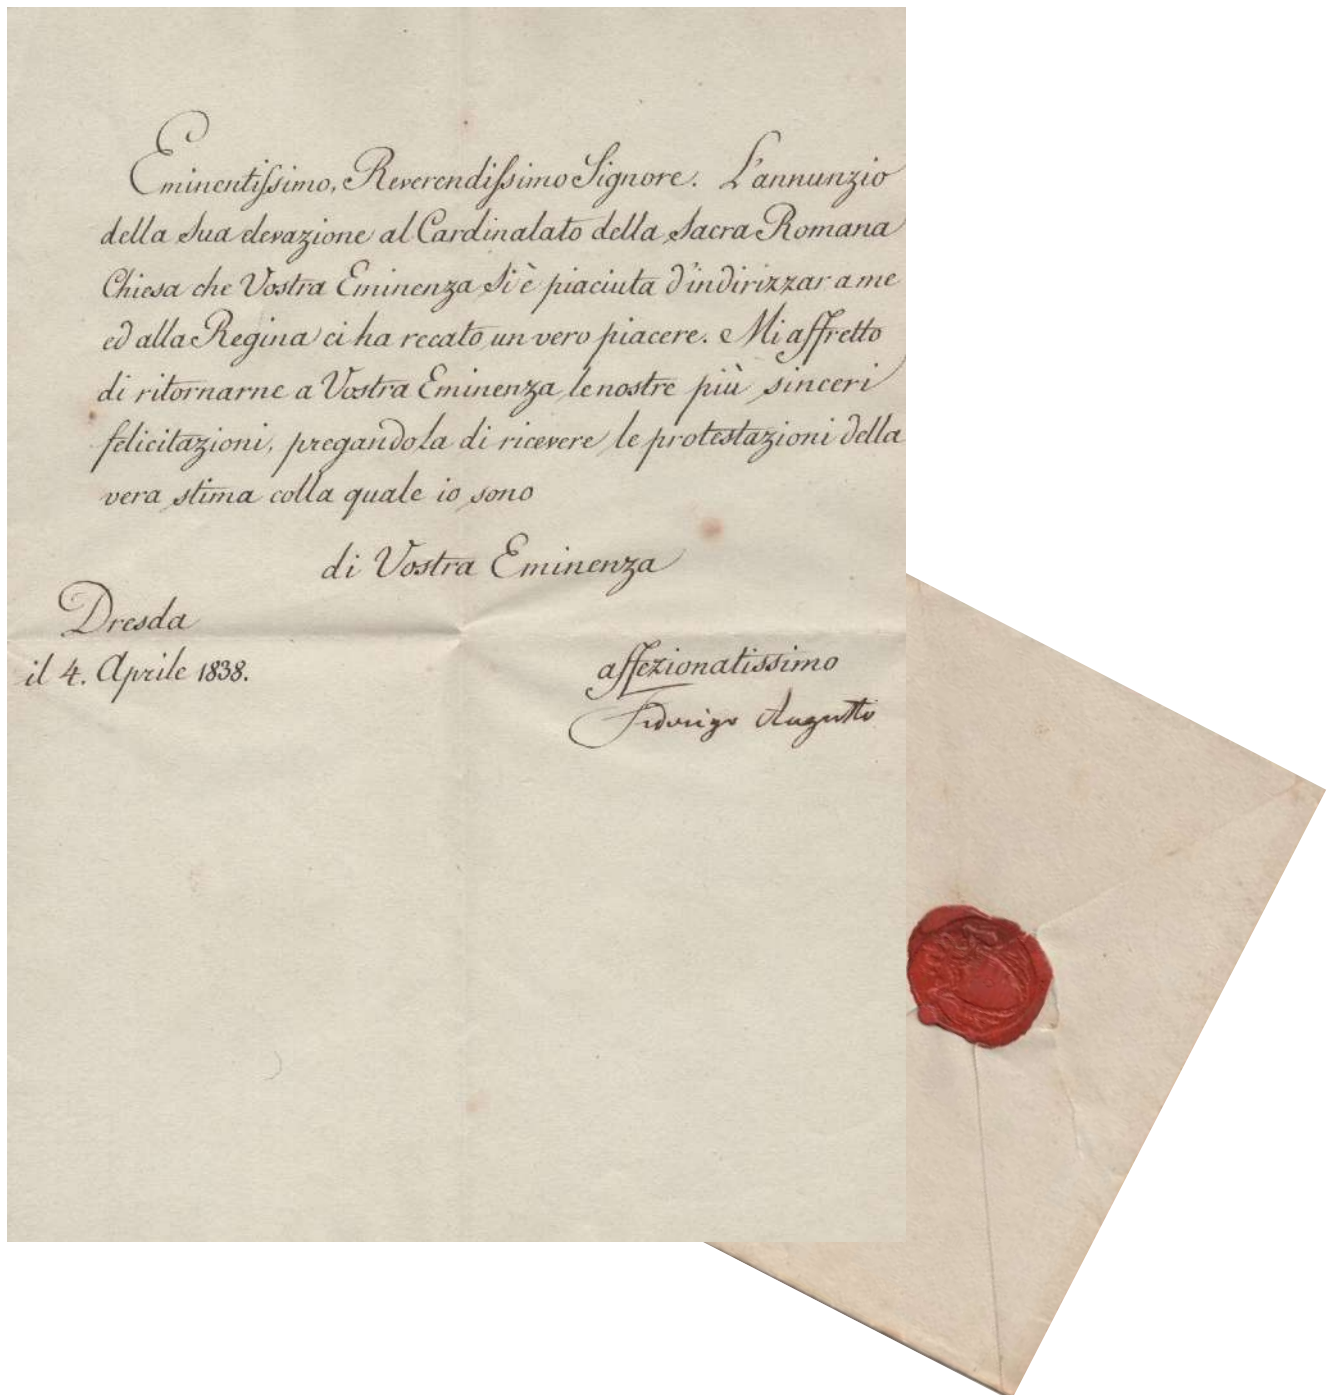 Eminentissimo, Reverendissimo Signore. L'annunzio
della Sua elevazione al Cardinalato della Sacra Romana
Chiesa che Vostra Eminenza Si è piaciuta d'indirizzar a me
ed alla Regina ci ha recato un vero piacere. Mi affretto
di ritornarne a Vostra Eminenza le nostre più sinceri
felicitazioni, pregandola di ricevere le protestazioni della
vera stima colla quale io sono
di Vostra Eminenza
Dresda
il 4. Aprile 1838.
affezionatissimo
Federigo Augusto